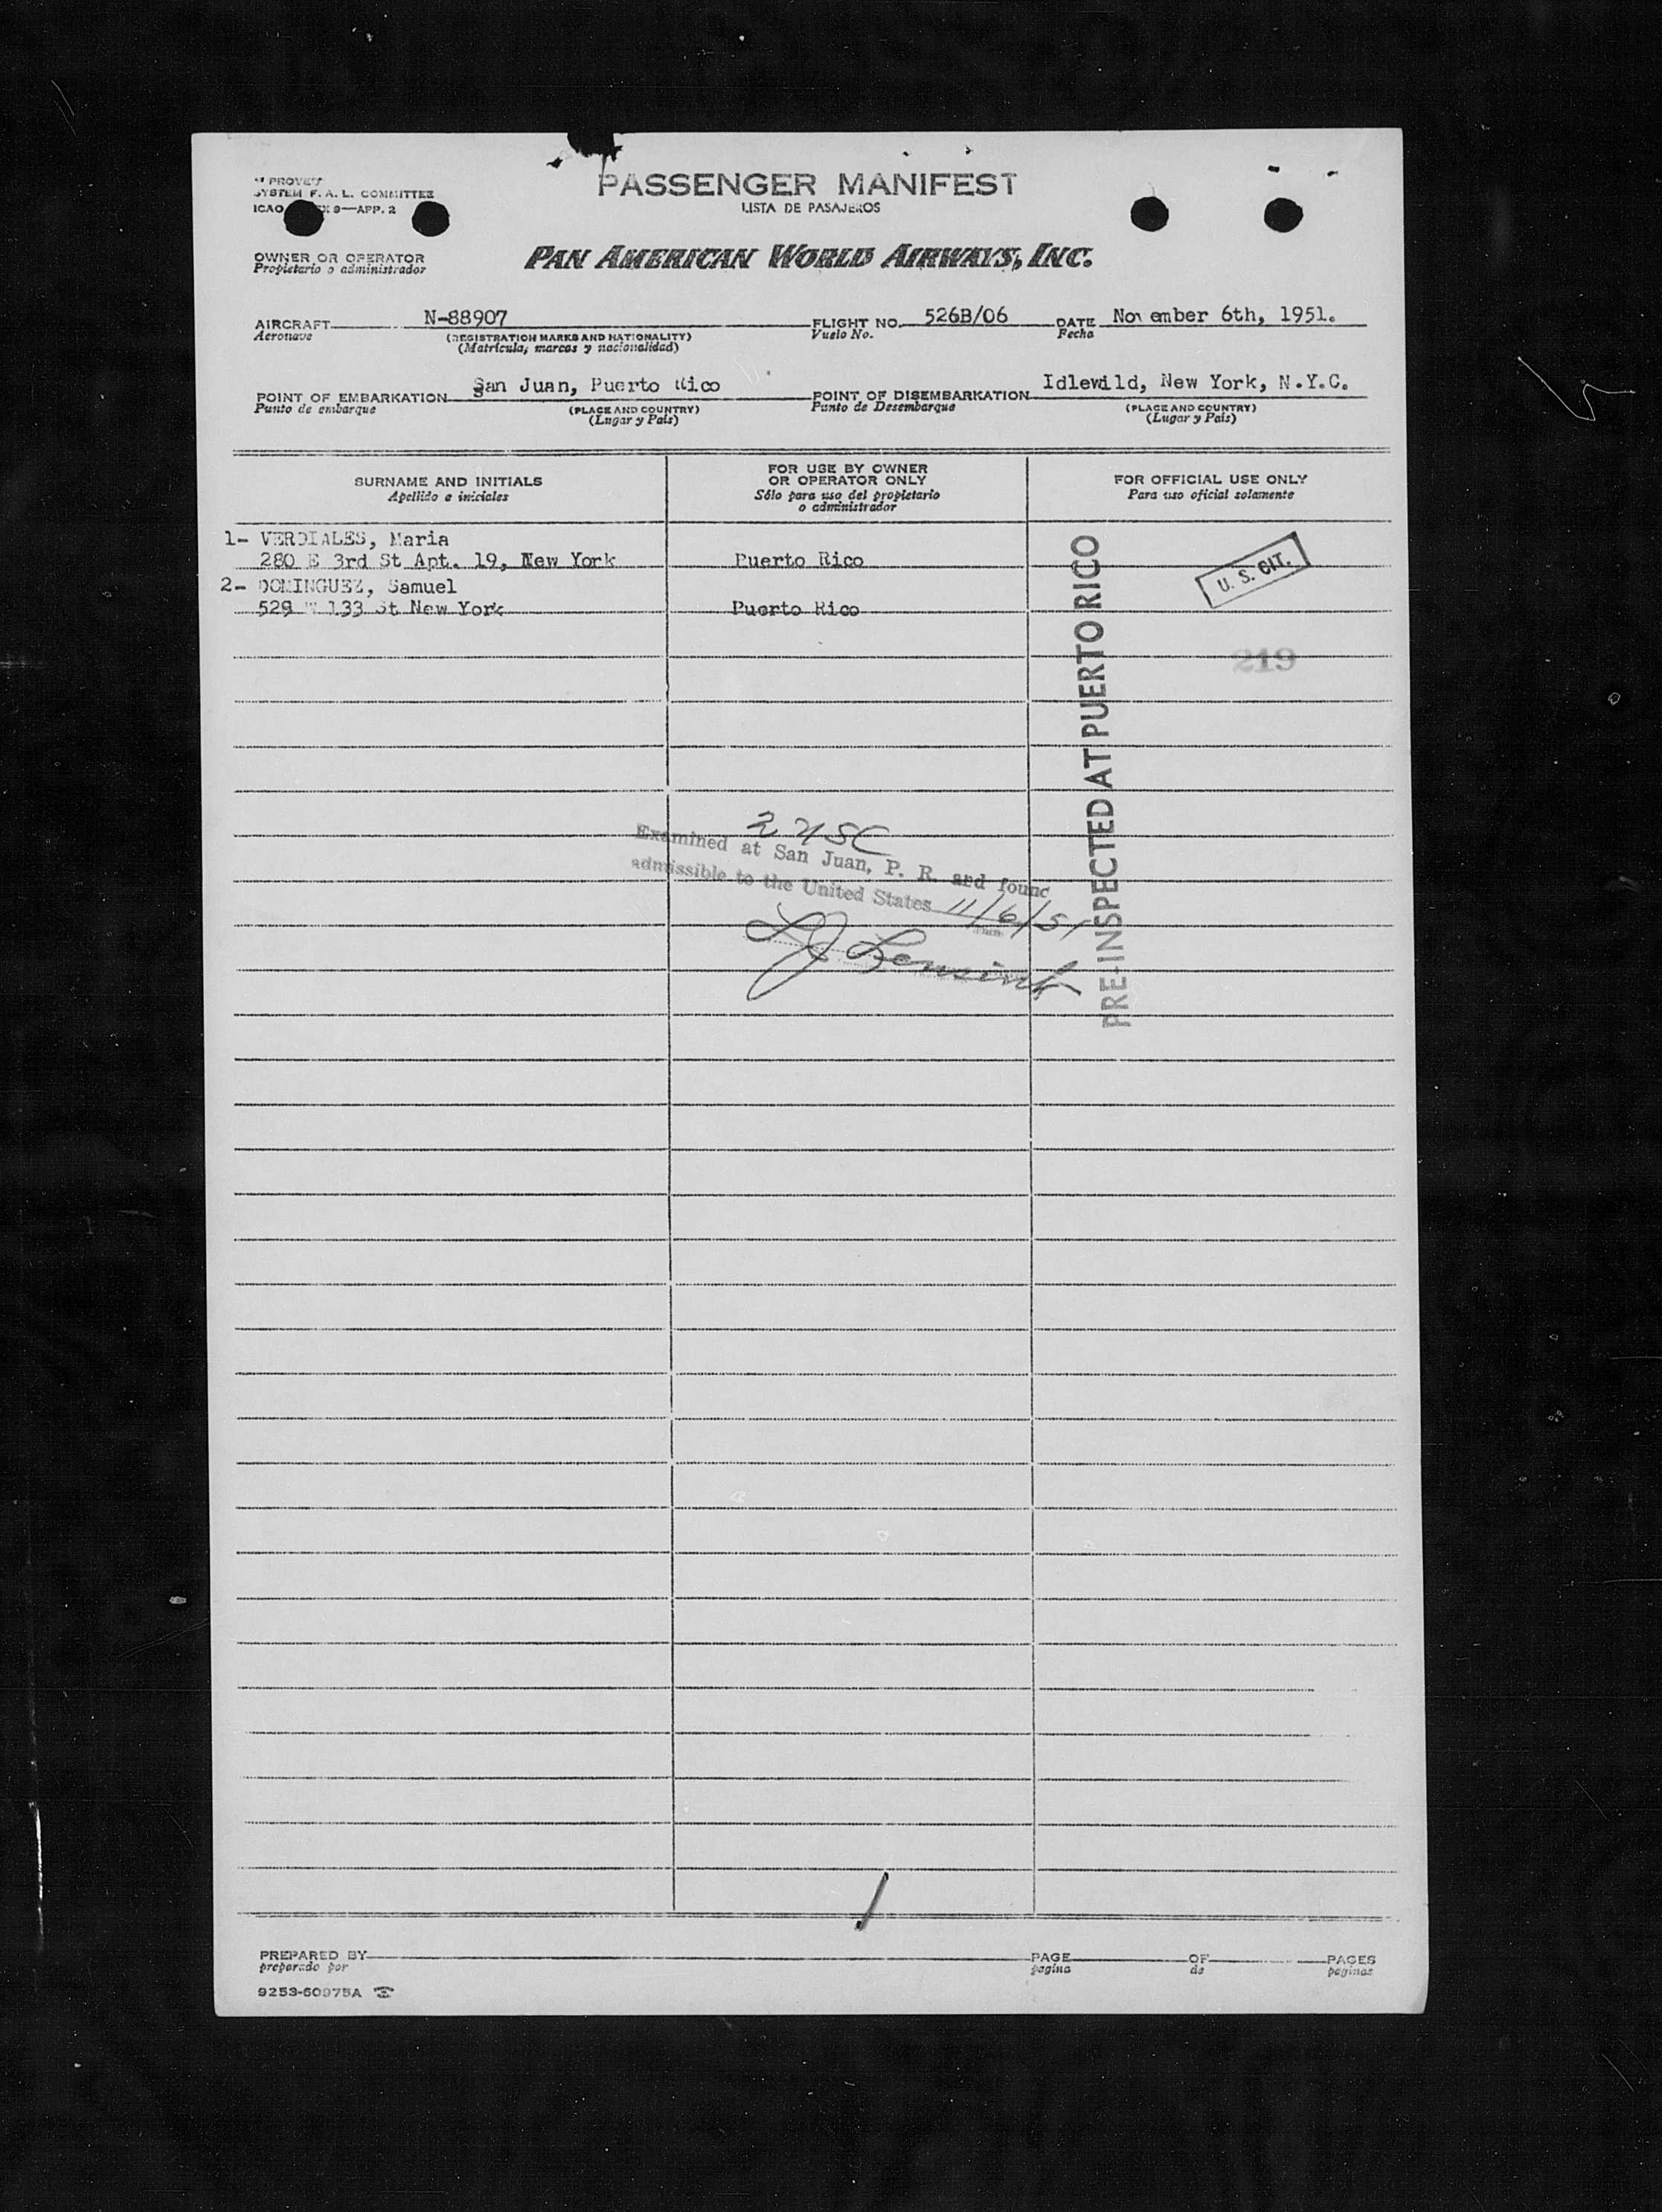 PASSENGER MANIFEST
LISTA DE PASAJEROS
SYSTEM F. A. L. COMMITTEE
ICAO 9—APP. 2
OWNER OR OPERATOR
Propietario o administrador
PAN AMERICAN WORLD AIRWAYS, INC.
AIRCRAFT N-88907 FLIGHT NO. 526B/06 DATE November 6th, 1951.
Aeronave (REGISTRATION MARKS AND NATIONALITY) Vuelo No. Fecha
(Matrícula, marcas y nacionalidad)
POINT OF EMBARKATION San Juan, Puerto Rico POINT OF DISEMBARKATION Idlewild, New York, N.Y.C.
Punto de embarque (PLACE AND COUNTRY) Punto de Desembarque (PLACE AND COUNTRY)
(Lugar y País) (Lugar y País)
SURNAME AND INITIALS
Apellido e iniciales
FOR USE BY OWNER
OR OPERATOR ONLY
Sólo para uso del propietario
o administrador
FOR OFFICIAL USE ONLY
Para uso oficial solamente
1- VERDIALES, Maria
280 E 3rd St Apt. 19, New York Puerto Rico
U. S. CIT.
2- DOMINGUEZ, Samuel
529 W 133 St New York Puerto Rico
219
PRE-INSPECTED AT PUERTO RICO
2 USC
Examined at San Juan, P. R. and found
admissible to the United States 11/6/51
PREPARED BY PAGE OF PAGES
preparado por pagina de paginas
9253-60975A